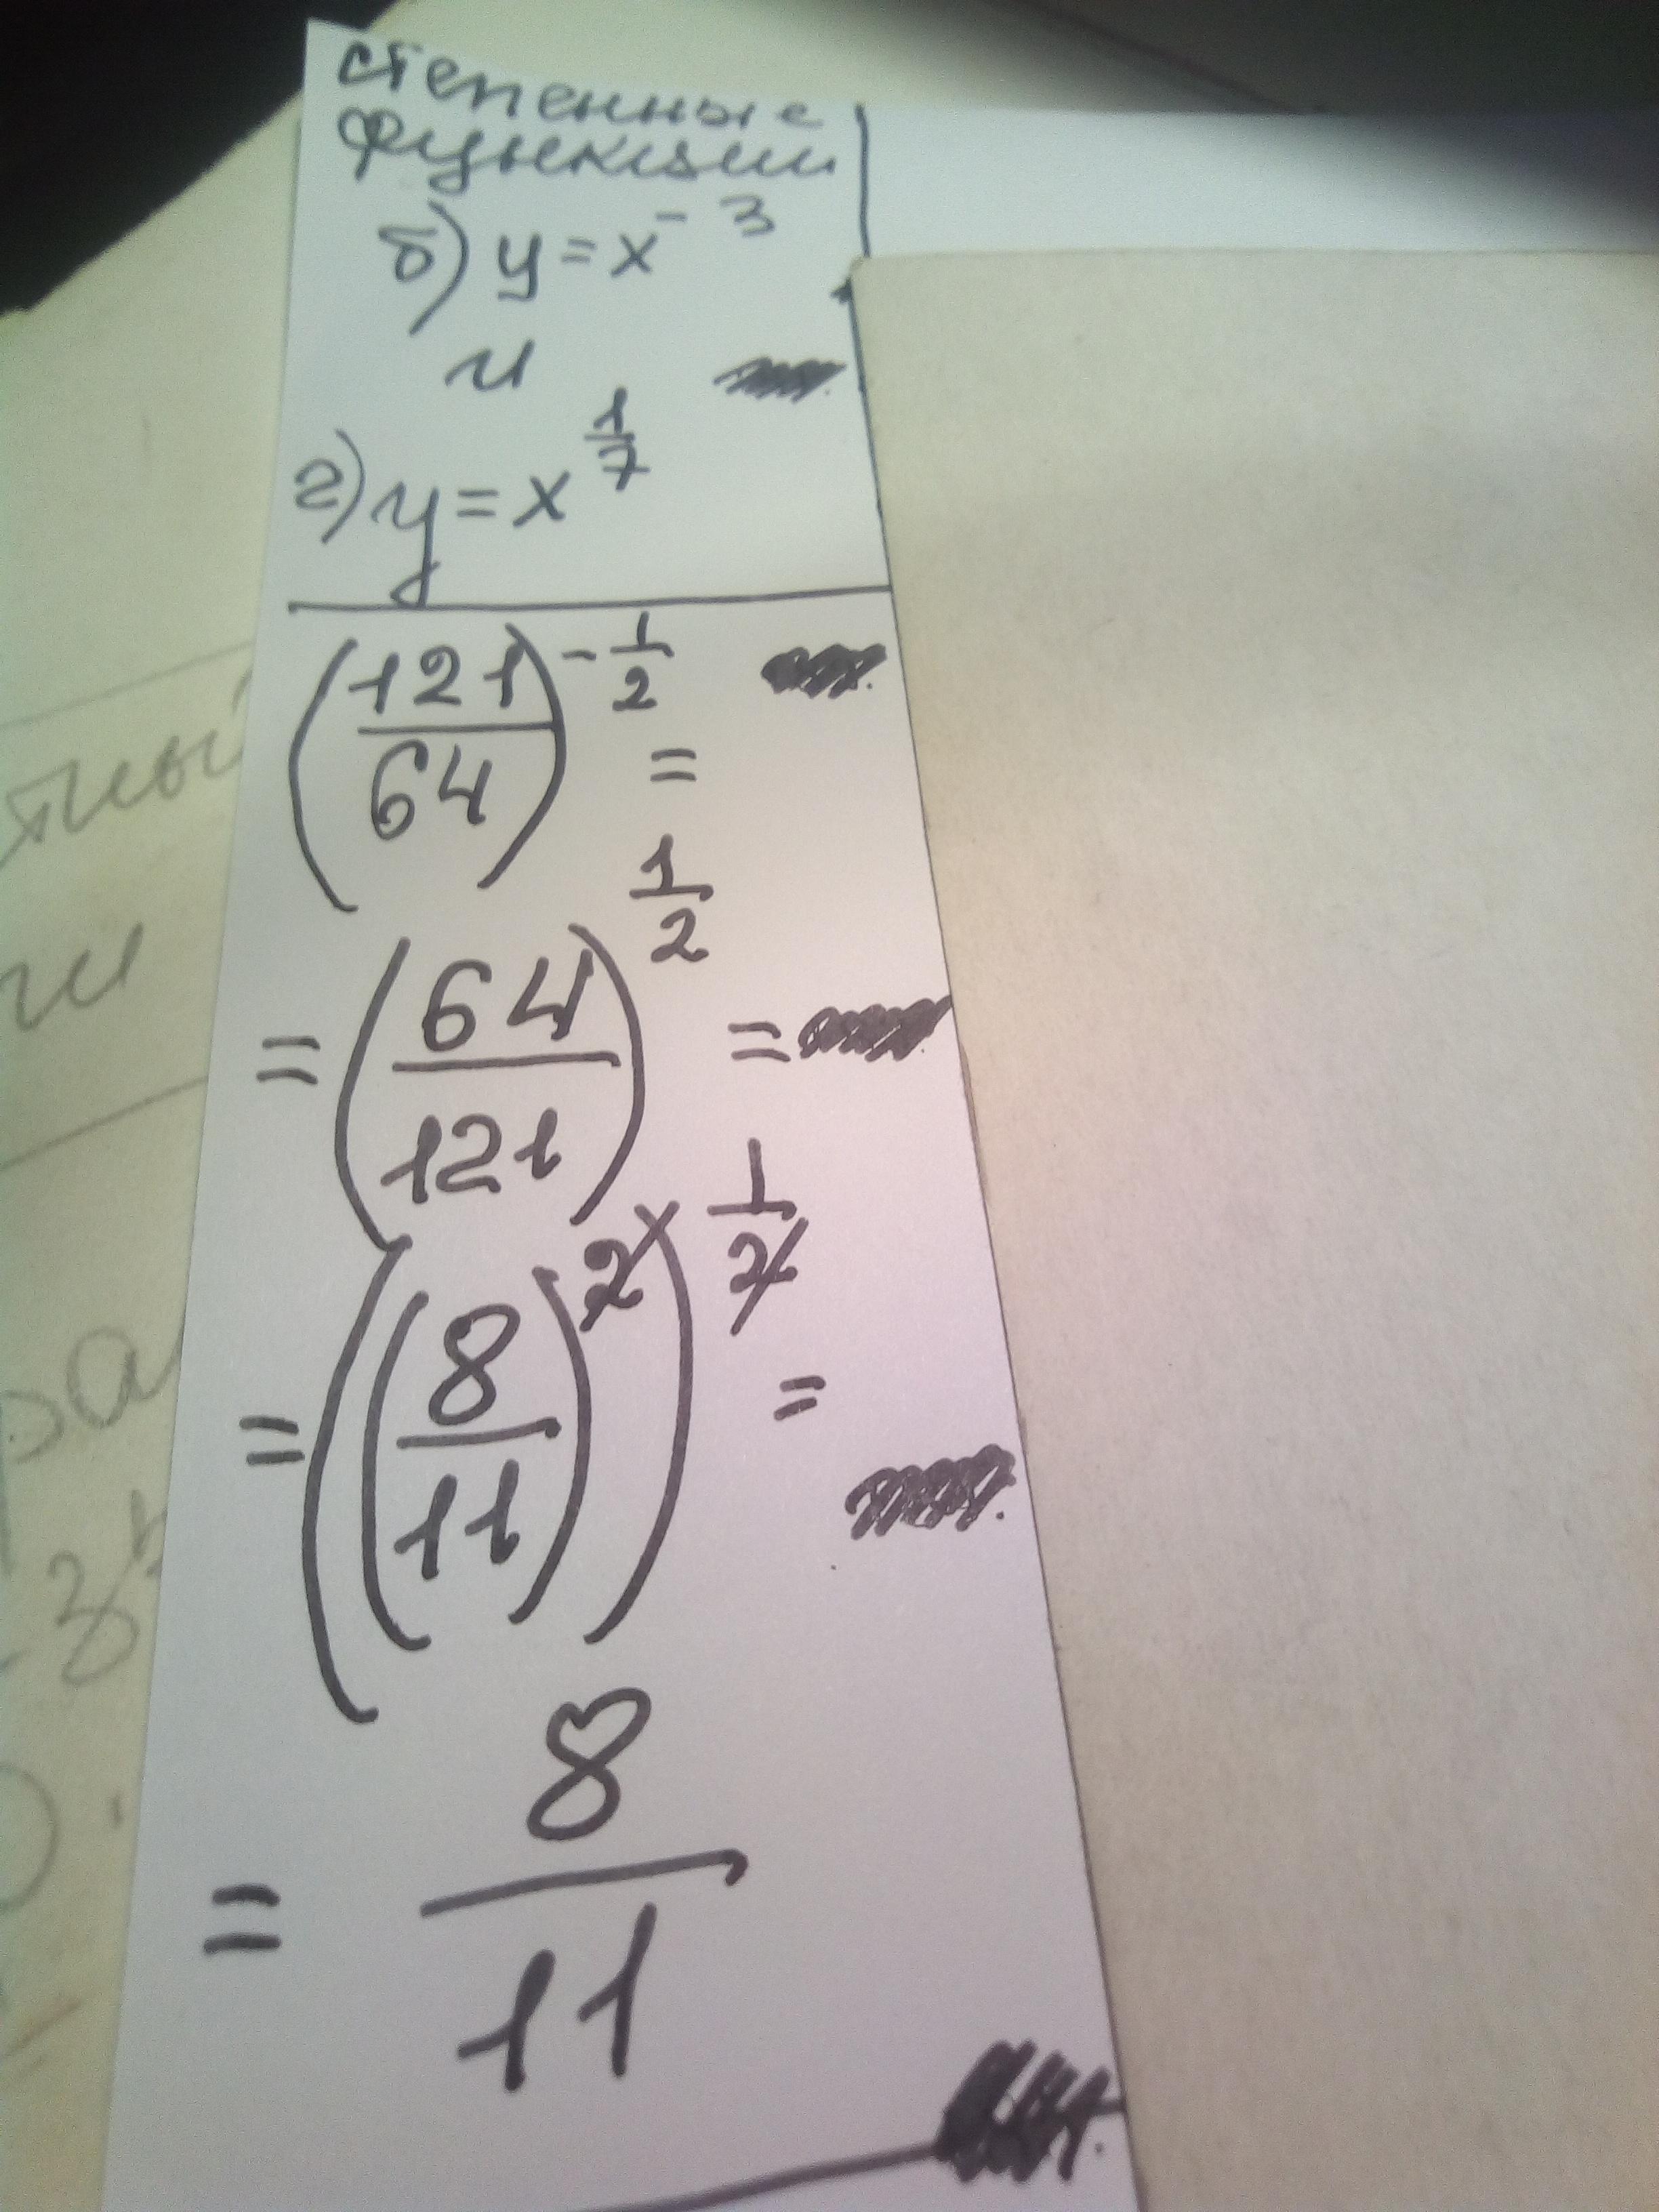 степенные
функции
б) y = x⁻³
и
г) y = x^(1/7)
(121/64)^(-1/2) =
= (64/121)^(1/2) =
= ((8/11)²)^(1/2) =
= 8/11